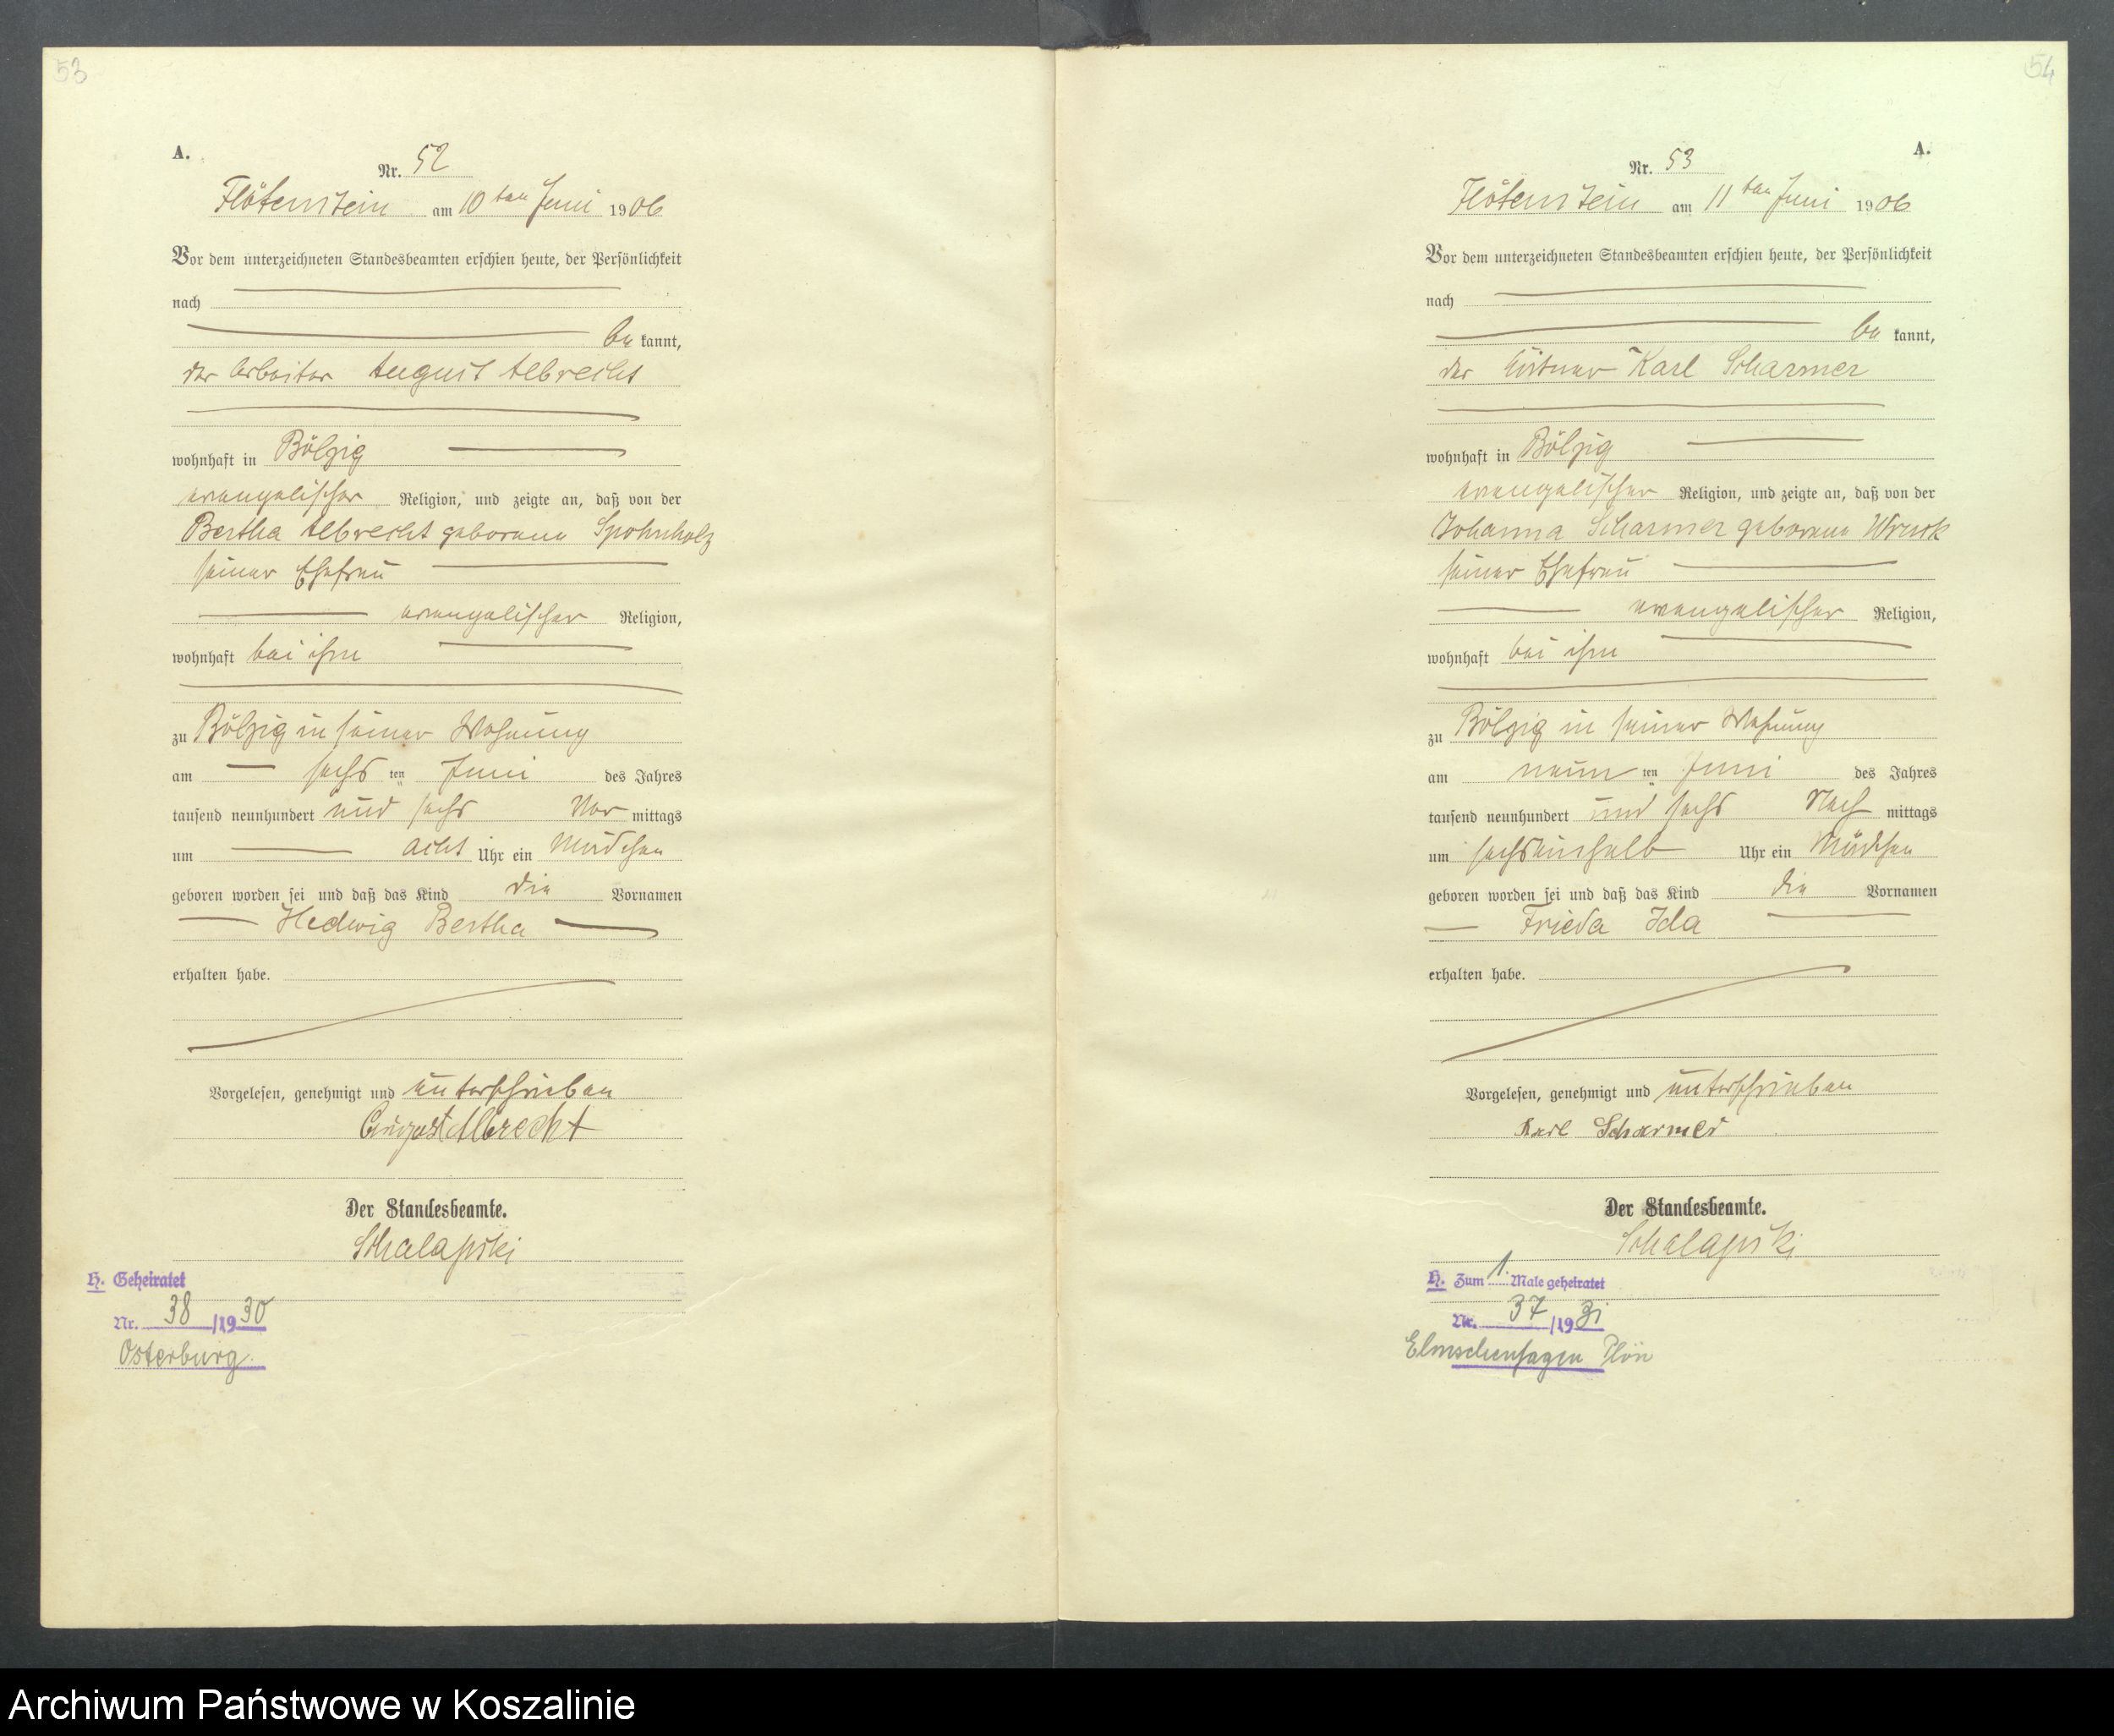 53
A.
Nr. 52
Flötenstein am 10ten Juni 1906
Vor dem unterzeichneten Standesbeamten erschien heute, der Persönlichkeit
nach
be kannt,
der Arbeiter August Albrecht
wohnhaft in Bölzig
evangelischer Religion, und zeigte an, daß von der
Bertha Albrecht geborene Spohnholz
seiner Ehefrau
evangelischer Religion,
wohnhaft bei ihm
zu Bölzig in seiner Wohnung
am sechs ten Juni des Jahres
tausend neunhundert und sechs Vor mittags
um acht Uhr ein Mädchen
geboren worden sei und daß das Kind die Vornamen
Hedwig Bertha
erhalten habe.
Vorgelesen, genehmigt und unterschrieben
August Albrecht
Der Standesbeamte.
Schalapski
H. Geheiratet
Nr. 38 /1930
Osterburg.
54
A.
Nr. 53
Flötenstein am 11ten Juni 1906
Vor dem unterzeichneten Standesbeamten erschien heute, der Persönlichkeit
nach
be kannt,
der Karl Scharmer
wohnhaft in Bölzig
evangelischer Religion, und zeigte an, daß von der
Johanna Scharmer geborene Wruck
seiner Ehefrau
evangelischer Religion,
wohnhaft bei ihm
zu Bölzig in seiner Wohnung
am neun ten Juni des Jahres
tausend neunhundert und sechs Nach mittags
um sechseinhalb Uhr ein Mädchen
geboren worden sei und daß das Kind die Vornamen
Frieda Ida
erhalten habe.
Vorgelesen, genehmigt und unterschrieben
Karl Scharmer
Der Standesbeamte.
Schalapski
H. Zum 1. Male geheiratet
Nr. 37 /1931
Elmschenhagen Plön
Archiwum Państwowe w Koszalinie